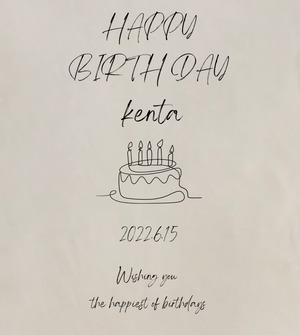 HAPPY
BIRTH DAY
kenta
2022.6.15
Wishing you
the happiest of birthdays